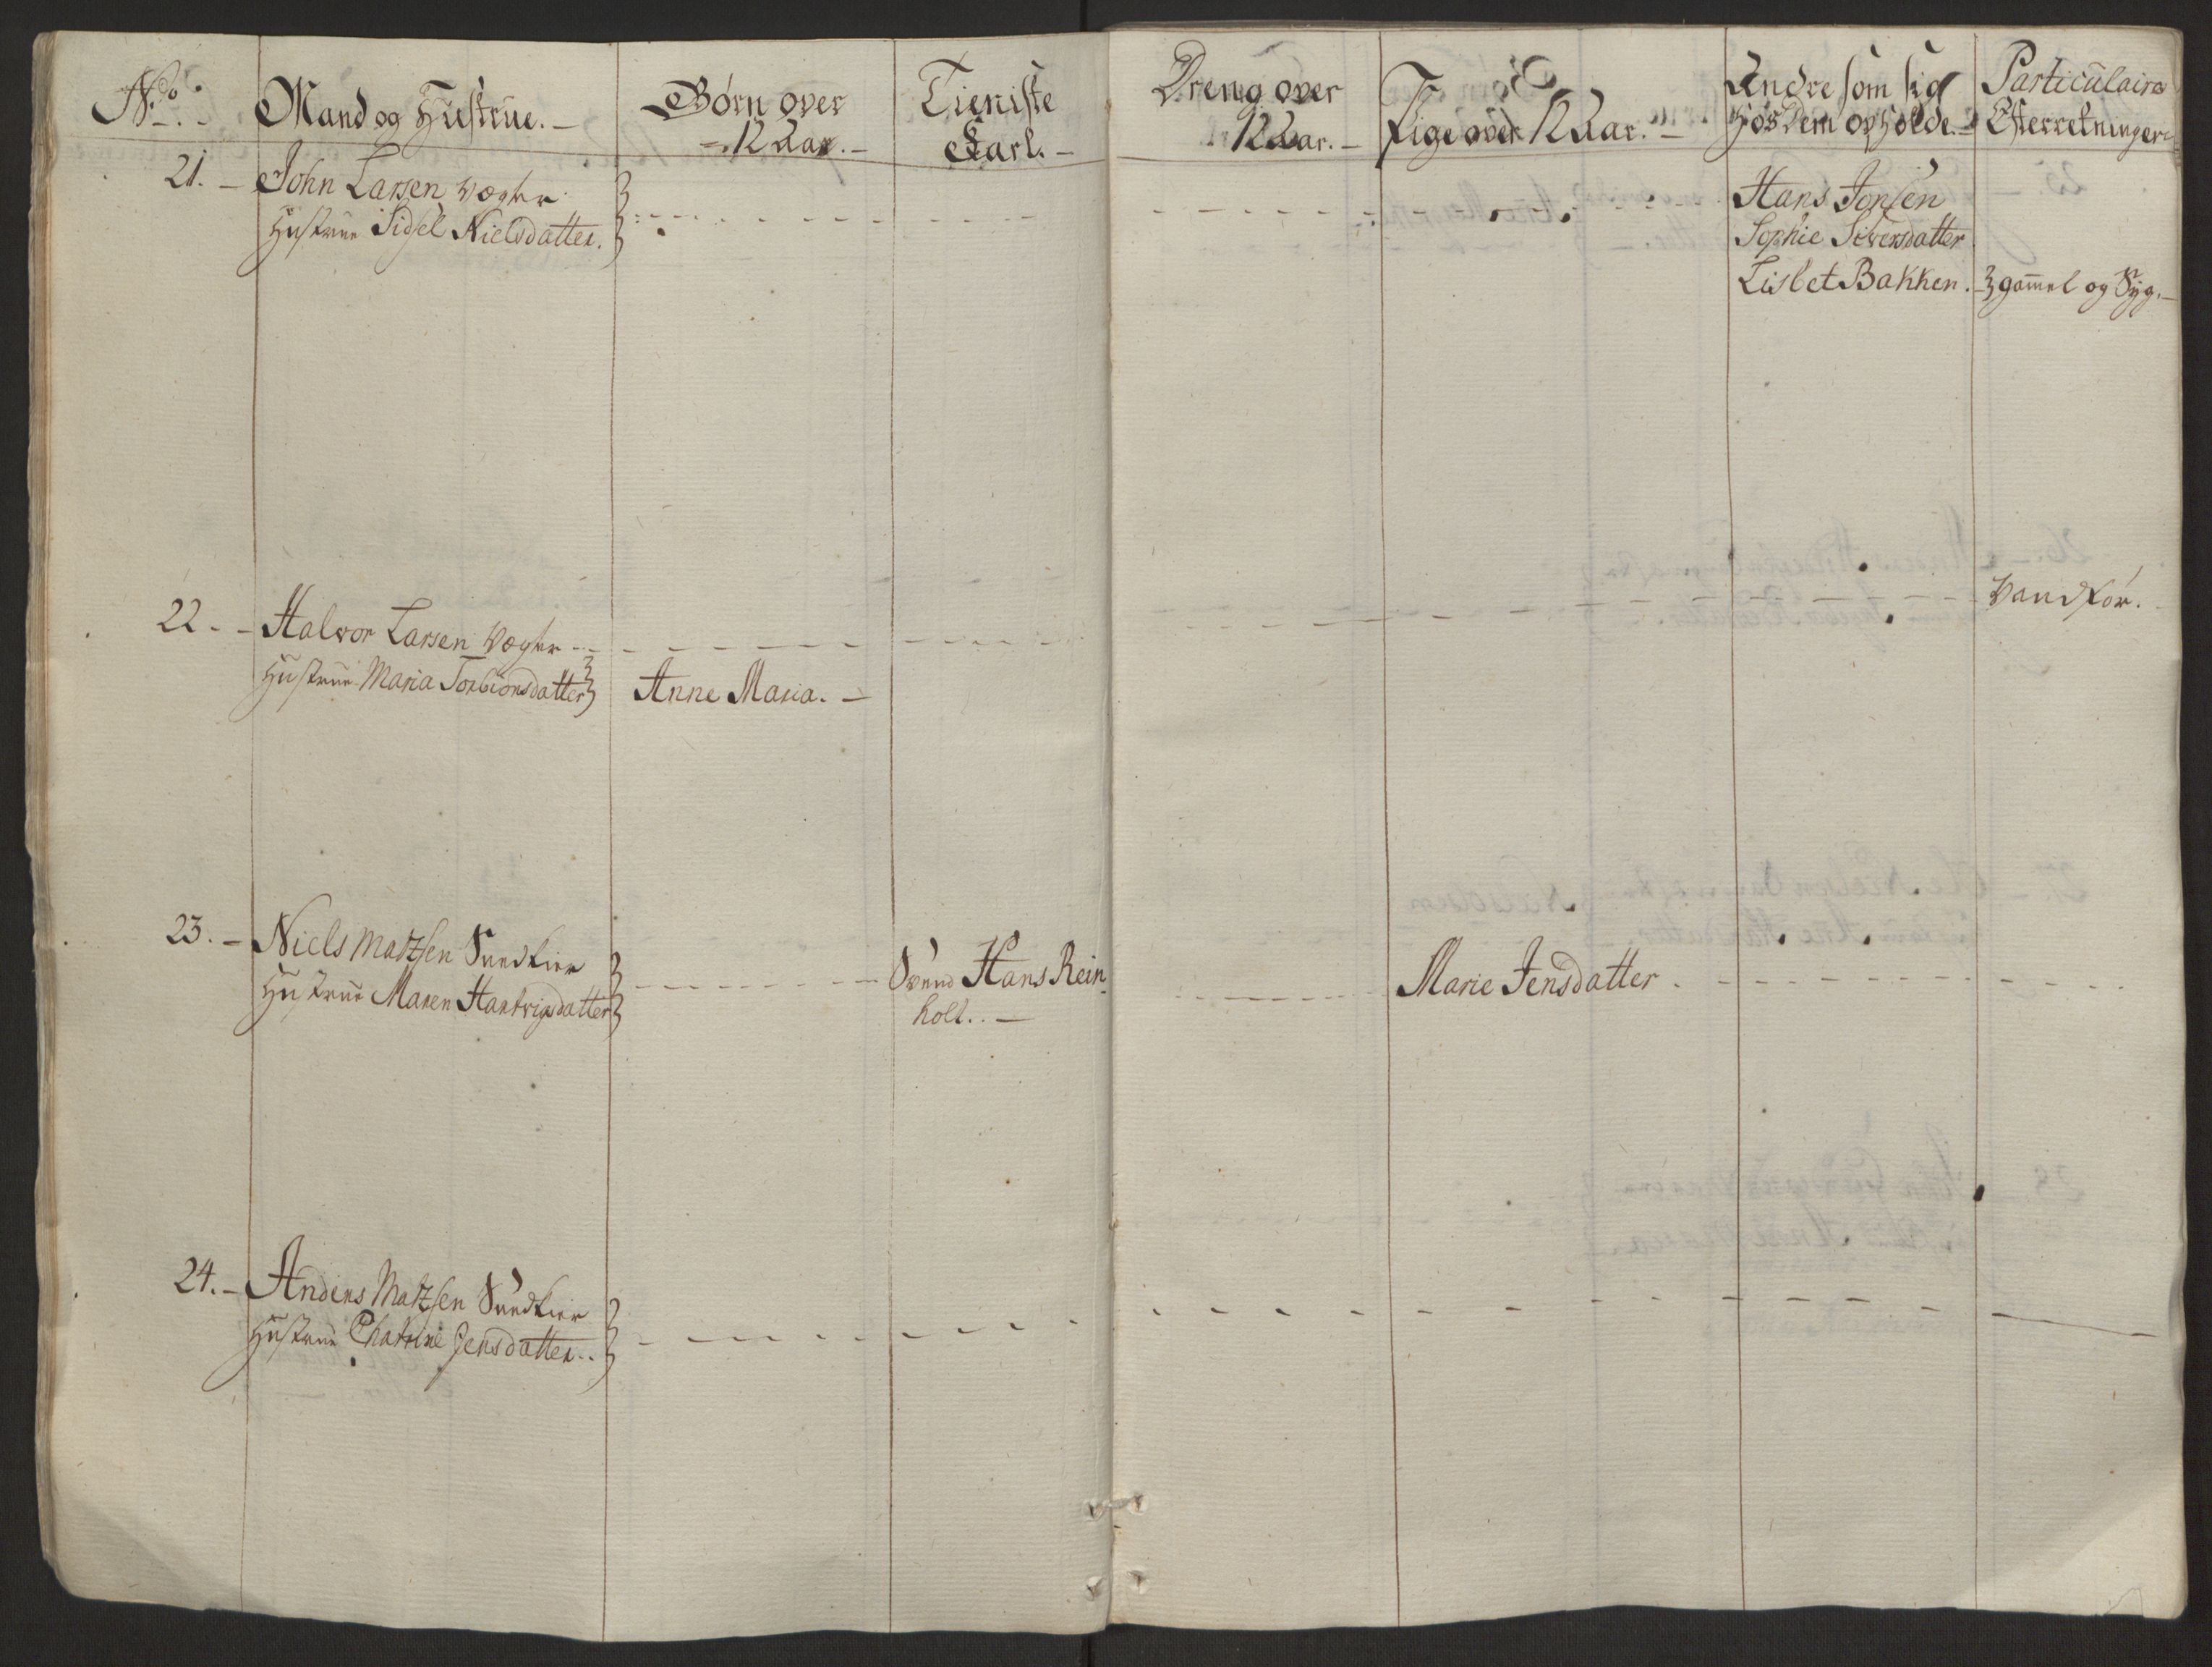 No. Mand og Hustrue. Børn over 12 Aar. Tieniste Karl. Dreng over 12 Aar. Pige over 12 Aar. Andre som sig hos Dem opholde. Particulaire Efterretninger
21. John Larsen Vægter
Hustrue Sidsel Nielsdatter.
Hans Jonsen
Sophie Siversdatter
Lisbet Bakken. gammel og Syg.
22. Halvor Larsen Vægter Vandfør.
Hustrue Maria Torbionsdatter Anne Maria.
23. Niels Matzsen Sundkier Svend Hans Rein Marie Jensdatter
Hustrue Maren Hartvigsdatter holt.
24. Anders Matzsen Sundkier
Hustrue Chatrine Jensdatter